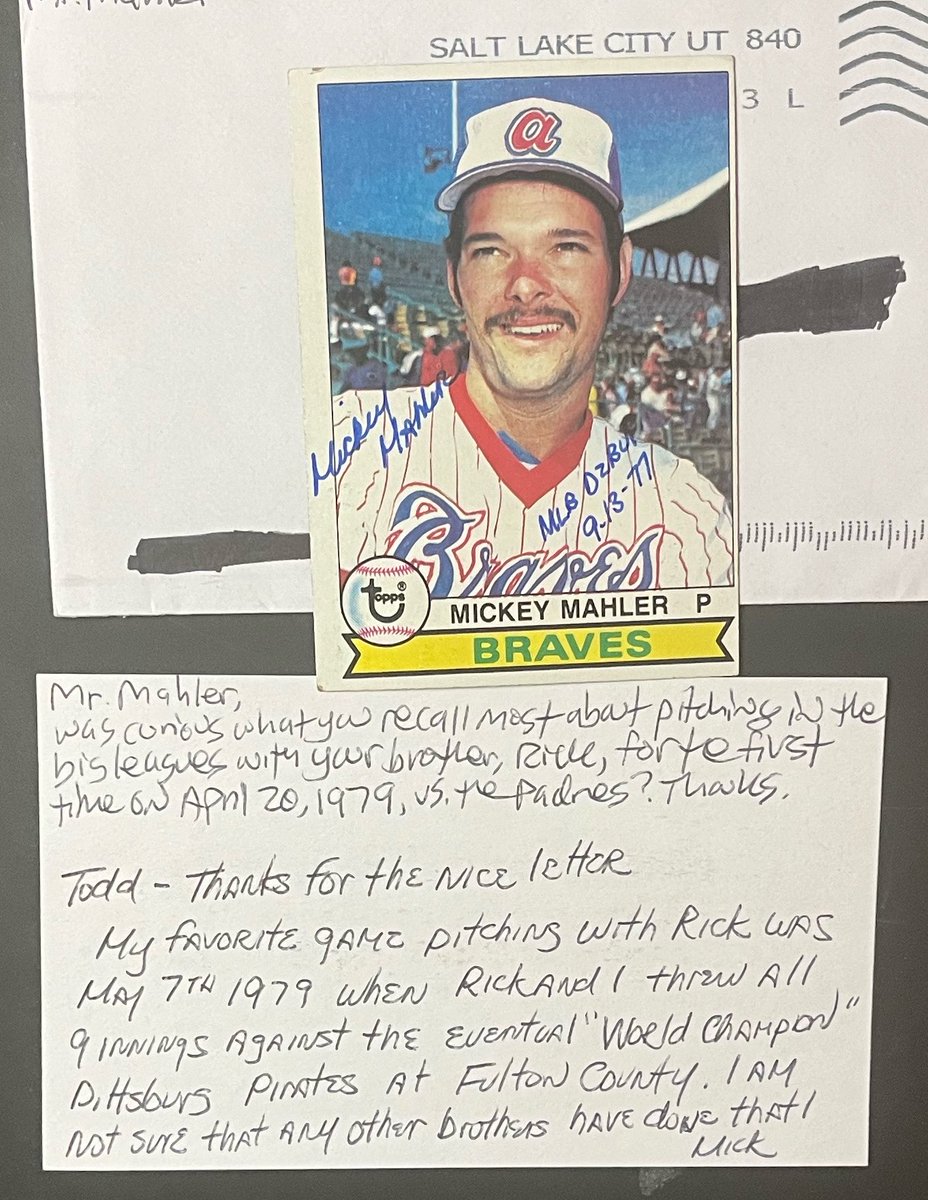 SALT LAKE CITY UT 840
3 L
a
Mickey
Mahler
MLB Debut
9-13-77
Braves
topps®
MICKEY MAHLER P
BRAVES
Mr. Mahler,
was curious what you recall most about pitching in the
big leagues with your brother, Rick, for the first
time on April 20, 1979, vs. the Padres? Thanks.
Todd - Thanks for the nice letter
My favorite game pitching with Rick was
May 7th 1979 when Rick and I threw all
9 innings against the eventual "World Champion"
Pittsburg Pirates at Fulton County. I am
not sure that any other brothers have done that!
Mick